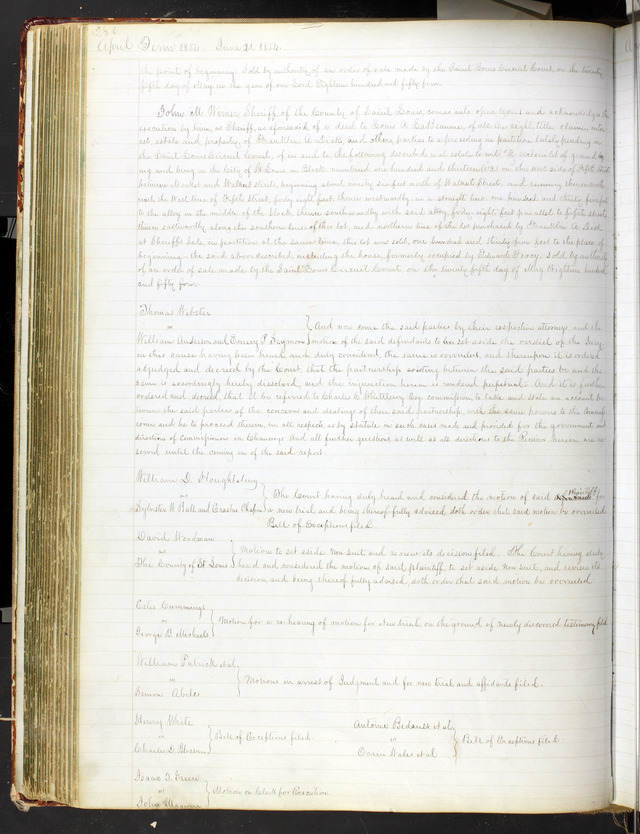 236
April Term 1854. June 21. 1854.
the point of beginning. Sold by authority of an order of sale made by the Saint Louis Circuit Court, on the twenty
fifth day of May in the year of our Lord Eighteen hundred and fifty four.
John M. Wimer Sheriff of the County of Saint Louis, comes into open Court and acknowledges the
execution by him, as Sheriff, as aforesaid, of a deed to Louis A. of all the right, title, claim, inter
est, estate and property, of Franklin A. and others, parties to a proceeding in partition lately pending in
the Saint Louis Circuit Court, of, in and to, the following described real estate to wit: A certain lot of ground ly
ing and being in the City of St Louis, in Block numbered one hundred and thirteen (113) on the west side of Fifth Street
between Market and Walnut streets, beginning about ninety six feet north of Walnut Street, and running thence north
with the West line of Fifth Street, forty eight feet, thence westwardly, in a straight line one hundred and thirty four feet
to the alley in the middle of the block, thence southwardly with said alley forty eight feet parallel to Fifth Street,
thence eastwardly along the southern line of this lot, and northern line of the lot purchased by Franklin A.
at Sheriffs Sale, in partition at the same time, this lot was sold, one hundred and thirty four feet to the place of
beginning the said above described, including the house, formerly occupied by Edward Tracy. Sold by authority
of an order of sale made by the Saint Louis Circuit Court on the twenty fifth day of May Eighteen hundred
and fifty four.
Thomas Webster
vs
William Anderson and Emery P. } And now come the said parties by their respective attorneys and the
motion of the said defendants to set aside the verdict of the Jury
in this cause having been heard, and duly considered, the same is overruled, and thereupon it is ordered
adjudged and decreed by the Court, that the partnership existing between the said parties be and the
same is accordingly hereby dissolved, and the injunction herein is rendered perpetual. And it is further
ordered and decreed, that it be referred to Charles C. Whittlesey Esq. commissioner, to take and state an account be
tween the said parties of the concerns and dealings of their said partnership, with the same powers to the Commis
sioner, and he to proceed therein, in all respects as by Statute in such cases made and provided for the government and
direction of Commissioners in Chancery. And all further questions, as well as all directions to the herein are re
served until the coming in of the said report.
William D. Houghteling
vs
Sylvester W. Ball and Erastus } The Court having duly heard and considered the motion of said plaintiff for
a new trial and being thereof fully advised doth order that said motion be overruled
Bill of Exceptions filed.
David Woodman
vs
The County of St. Louis } Motions to set aside non suit and review its decision filed. The Court having duly
heard and considered the motions of said plaintiff to set aside non suit, and review its
decision, and being thereof fully advised, doth order that said motion be overruled.
Estes Cummings
vs
George B. Michaels } Motion for a re-hearing of motion for New trial, on the ground of newly discovered testimony filed
William Patrick et al
vs
Simon } Motions in arrest of Judgment and for new trial and affidavits filed.
Henry White
vs
Charles D. } Bill of Exceptions filed.
Antoine et al
vs
et al } Bill of Exceptions filed
Isaac T. Green
vs
John } Motion on Clerk for Execution